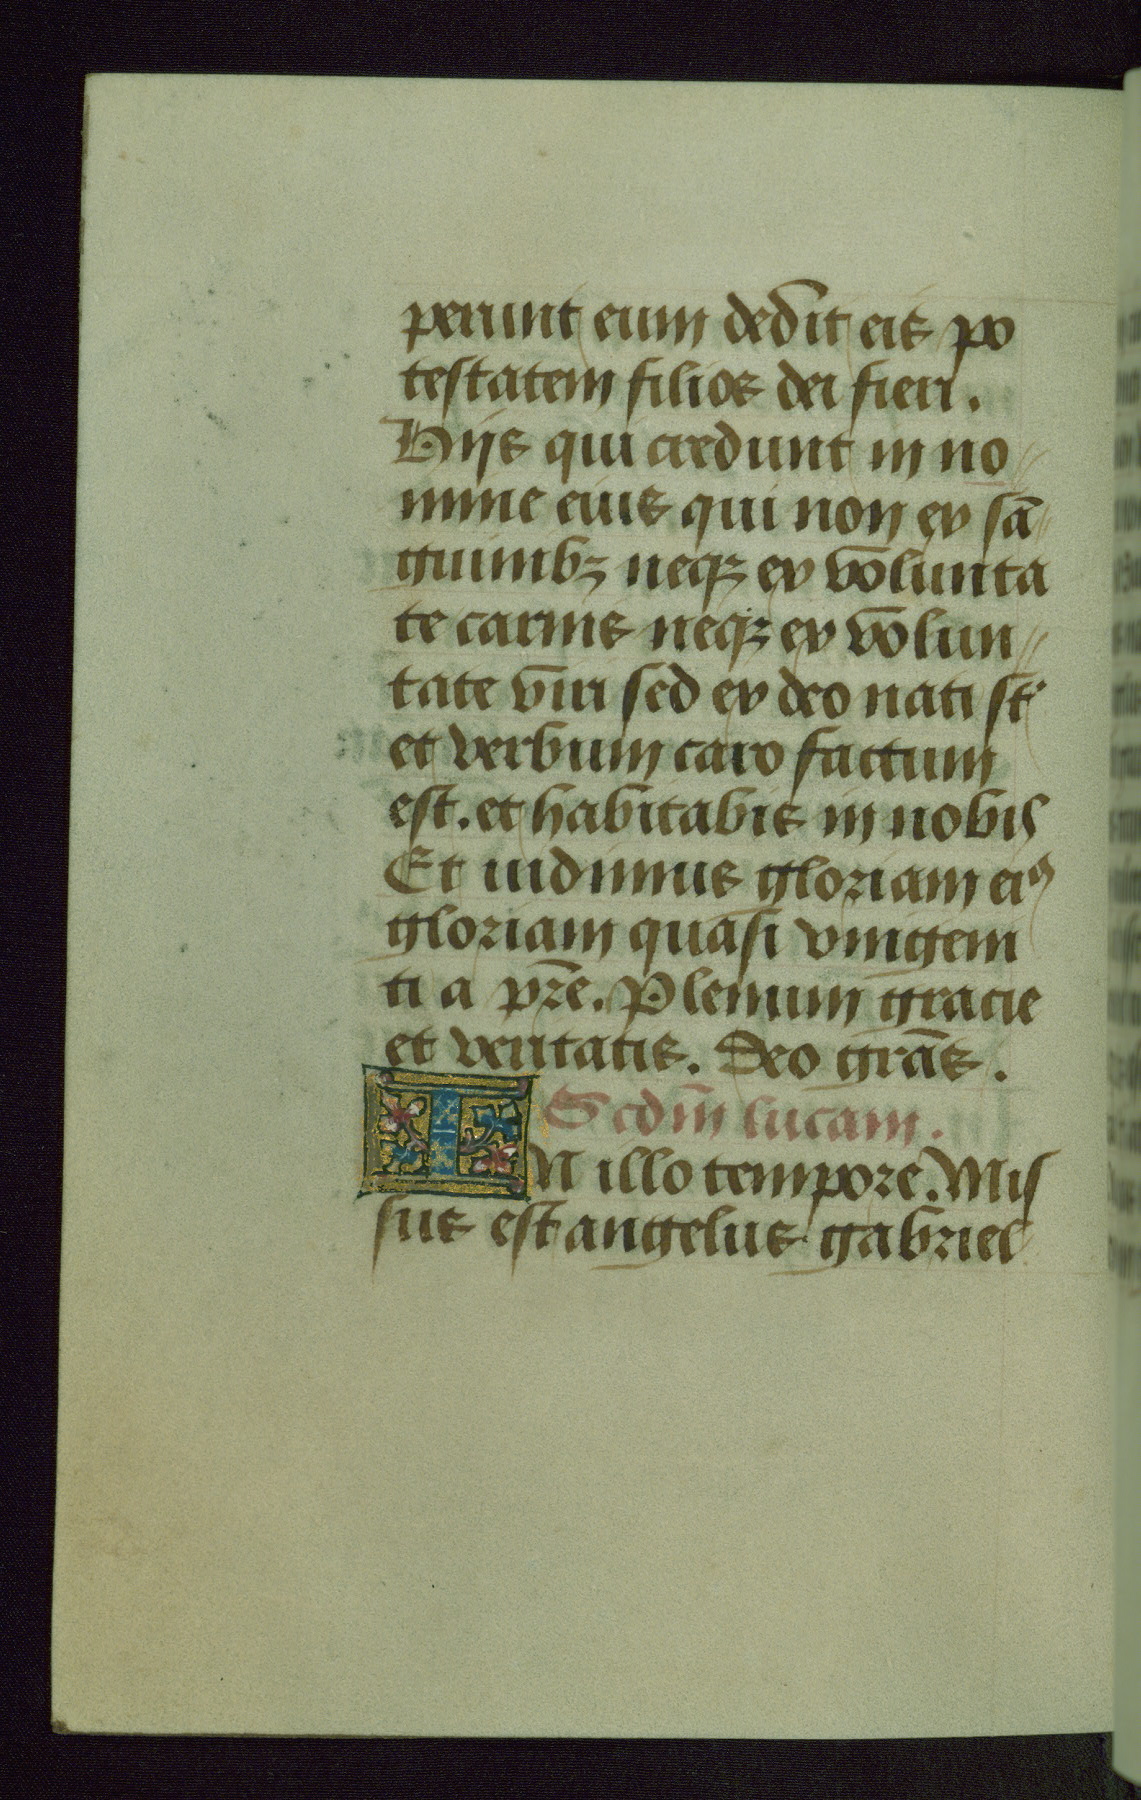 perunt eum dedit eis po
testatem filioꝝ dei fieri.
Hijs qui credunt in no
mine eius qui non ex sā
guinibꝫ neqꝫ ex volunta
te carnis neqꝫ ex volun
tate viri sed ex deo nati st̄
et verbum caro factum
est. et habitabis in nobis
Et uidimus gloriam eiꝰ
gloriam quasi vnigeni
ti a pr̄e. Plenum gracie
et veritatis. Deo grās.
Scd̄m lucam.
IN illo tempore. Mis
sus est angelus gabriel